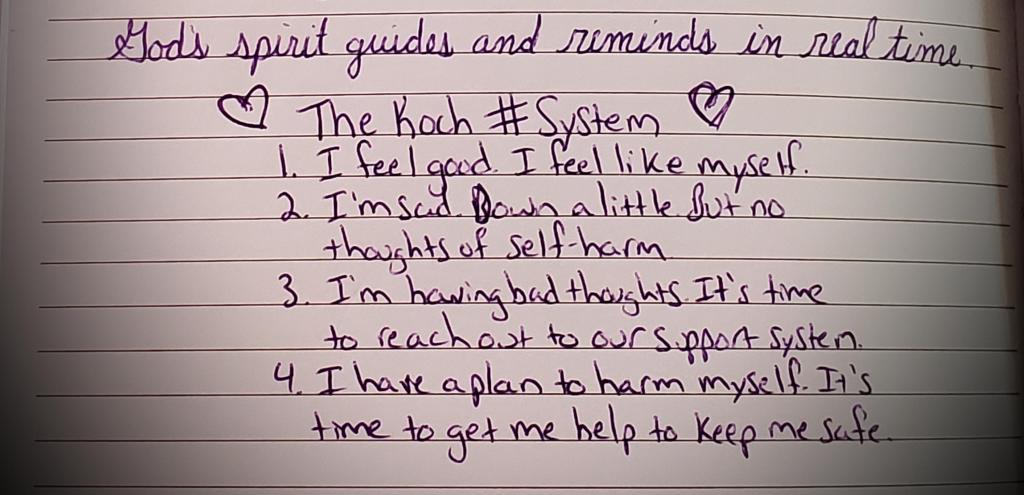 God's spirit guides and reminds in real time.
The Koch # System
1. I feel good. I feel like myself.
2. I'm sad. Down a little But no
thoughts of self-harm
3. I'm having bad thoughts. It's time
to reach out to our support system.
4. I have a plan to harm myself. It's
time to get me help to keep me safe.